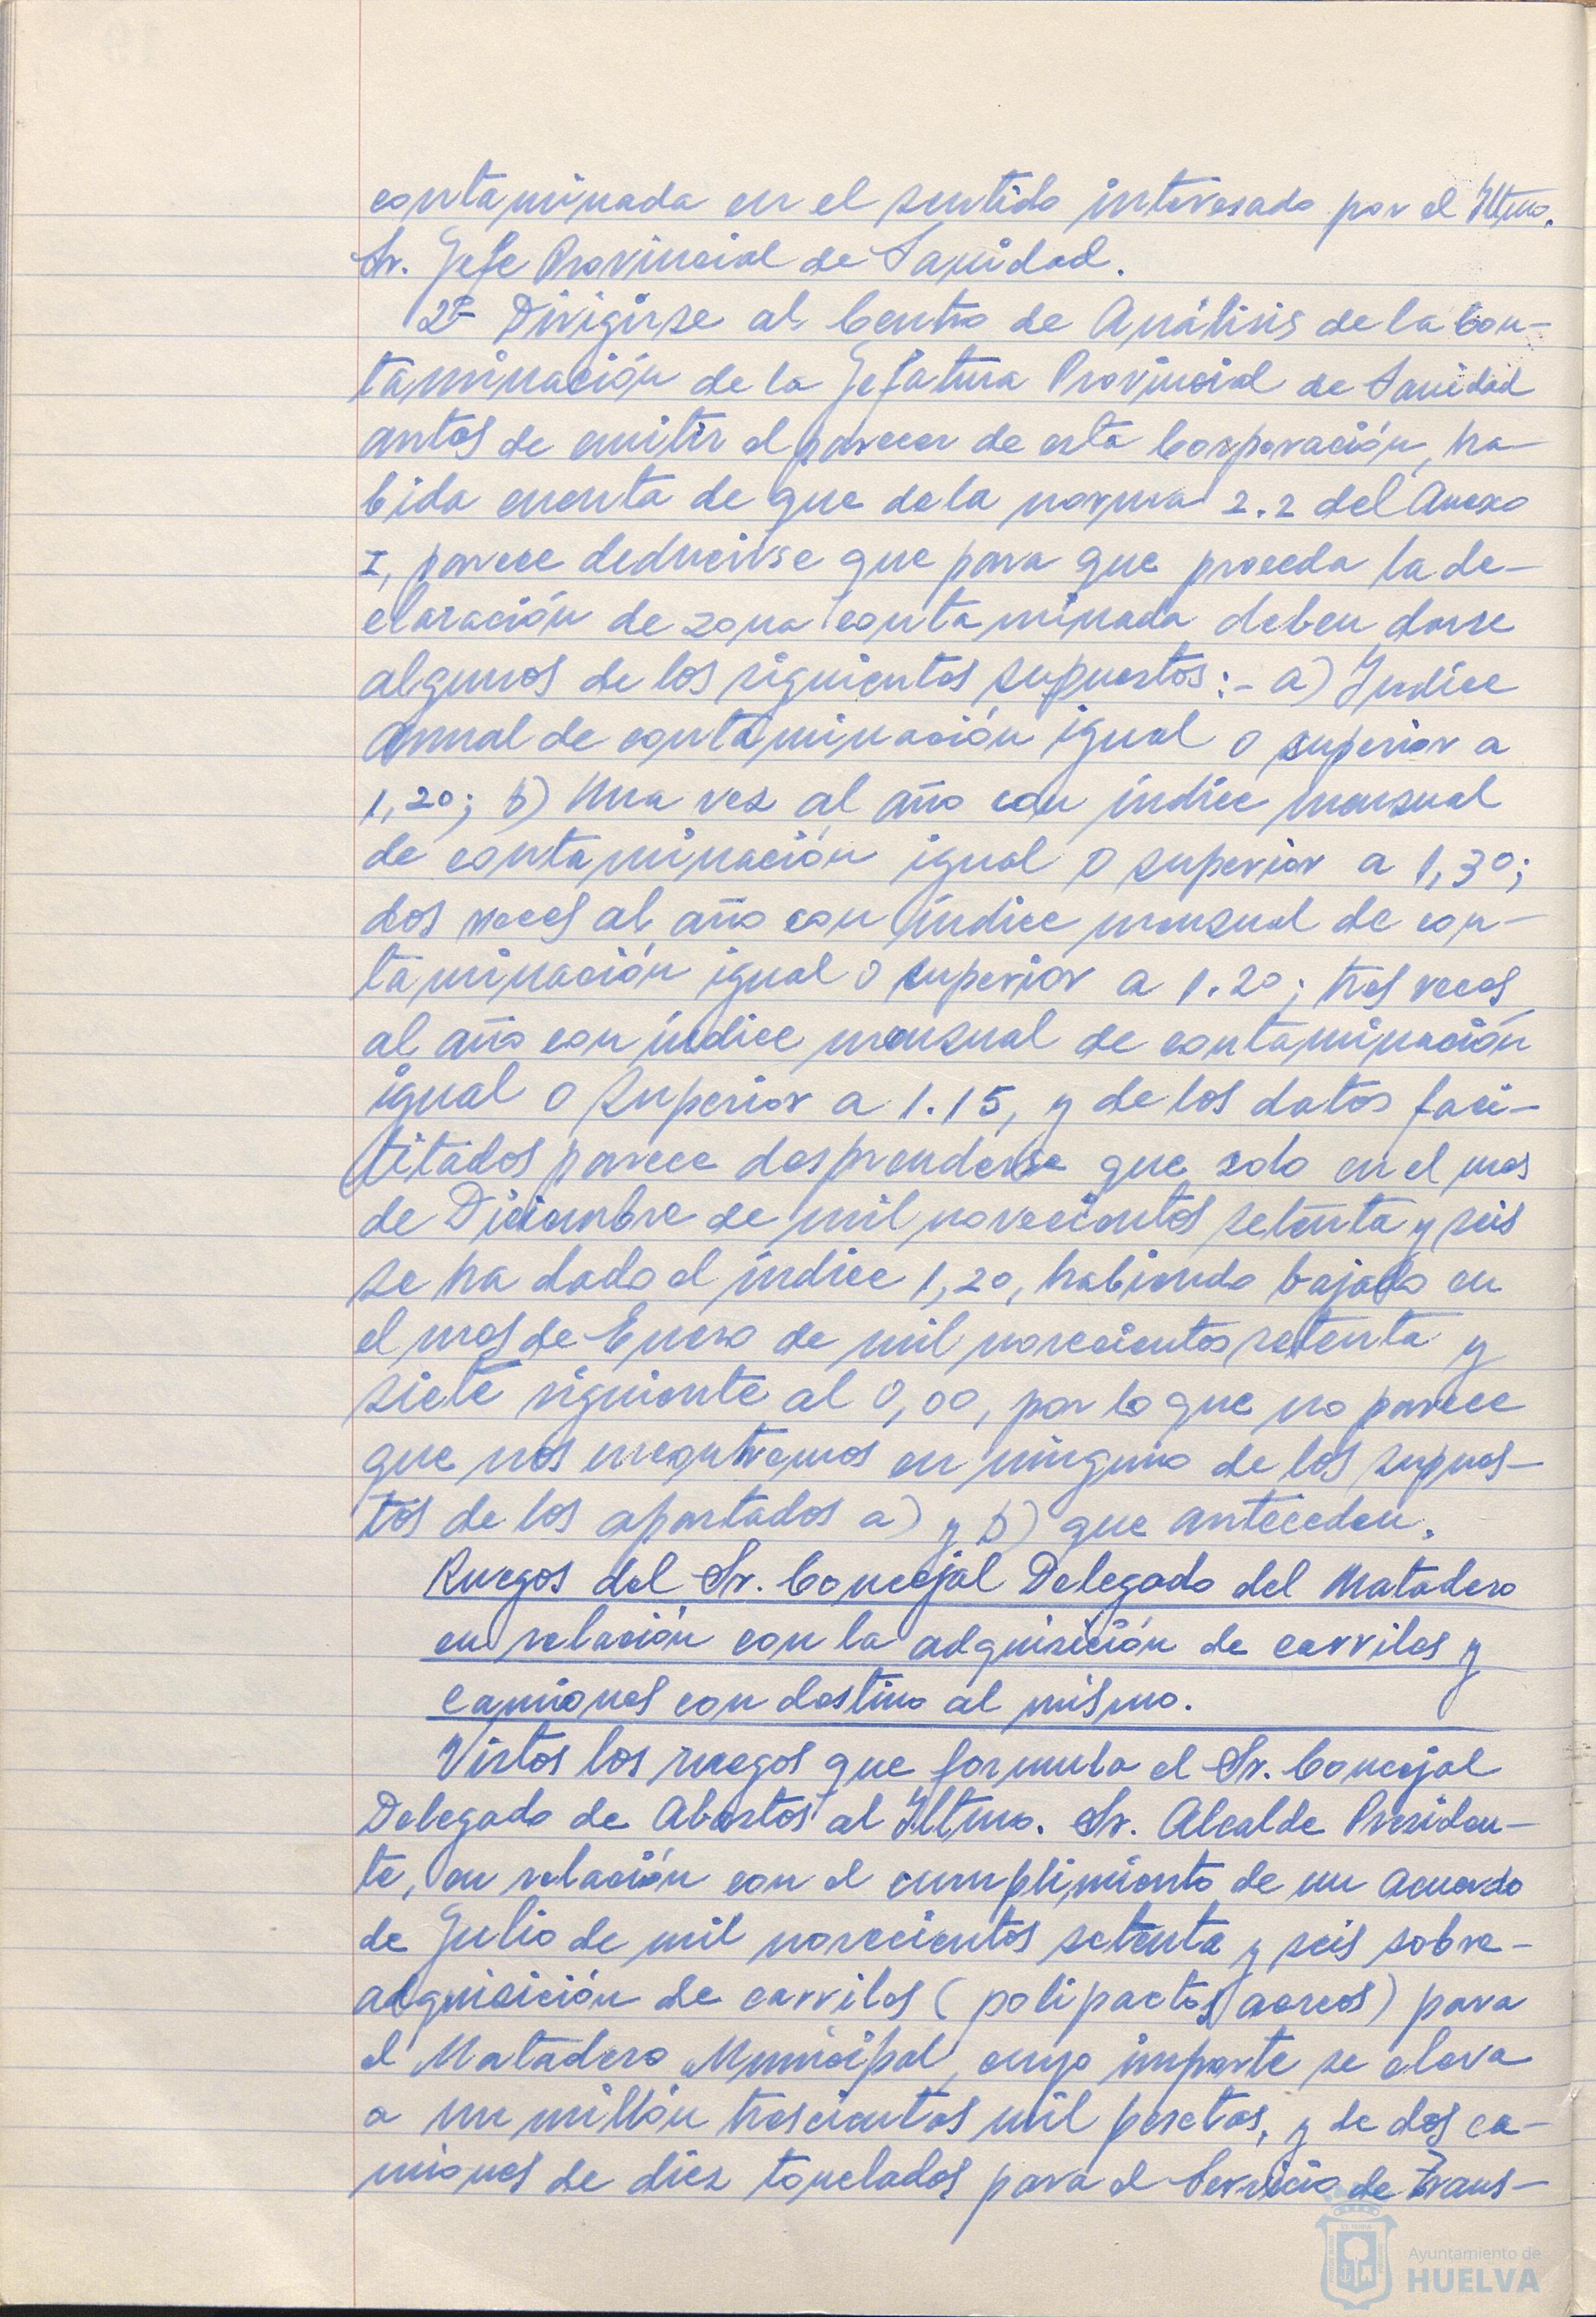 contaminada en el sentido interesado por el Iltmo.
Sr. Jefe Provincial de Sanidad.
2º- Dirigirse al Centro de Análisis de la Con-
taminación de la Jefatura Provincial de Sanidad
antes de emitir el parecer de esta Corporación, ha-
bida cuenta de que de la norma 2.2 del Anexo
I, parece deducirse que para que proceda la de-
claración de zona contaminada deben darse
algunos de los siguientes supuestos:- a) Indice
Anual de contaminación igual o superior a
1,20; b) Una vez al año con índice mensual
de contaminación igual o superior a 1,30;
dos veces al año con índice mensual de con-
taminación igual o superior a 1.20; tres veces
al año con índice mensual de contaminación
igual o superior a 1.15, y de los datos faci-
litados parece desprenderse que solo en el mes
de Diciembre de mil novecientos setenta y seis
se ha dado el índice 1,20, habiendo bajado en
el mes de Enero de mil novecientos setenta y
siete siguiente al 0,00, por lo que no parece
que nos encontremos en ninguno de los supues-
tos de los apartados a) y b) que anteceden.
Ruegos del Sr. Concejal Delegado del Matadero
en relación con la adquisición de carriles y
camiones con destino al mismo.
Vistos los ruegos que formula el Sr. Concejal
Delegado de Abastos al Iltmo. Sr. Alcalde Presiden-
te, en relación con el cumplimiento de un acuerdo
de Julio de mil novecientos setenta y seis sobre-
adquisición de carriles (polipactos aereos) para
el Matadero Municipal, cuyo importe se eleva
a un millón trescientas mil pesetas, y de dos ca-
miones de diez toneladas para el Servicio de Trans-
Ayuntamiento de
HUELVA